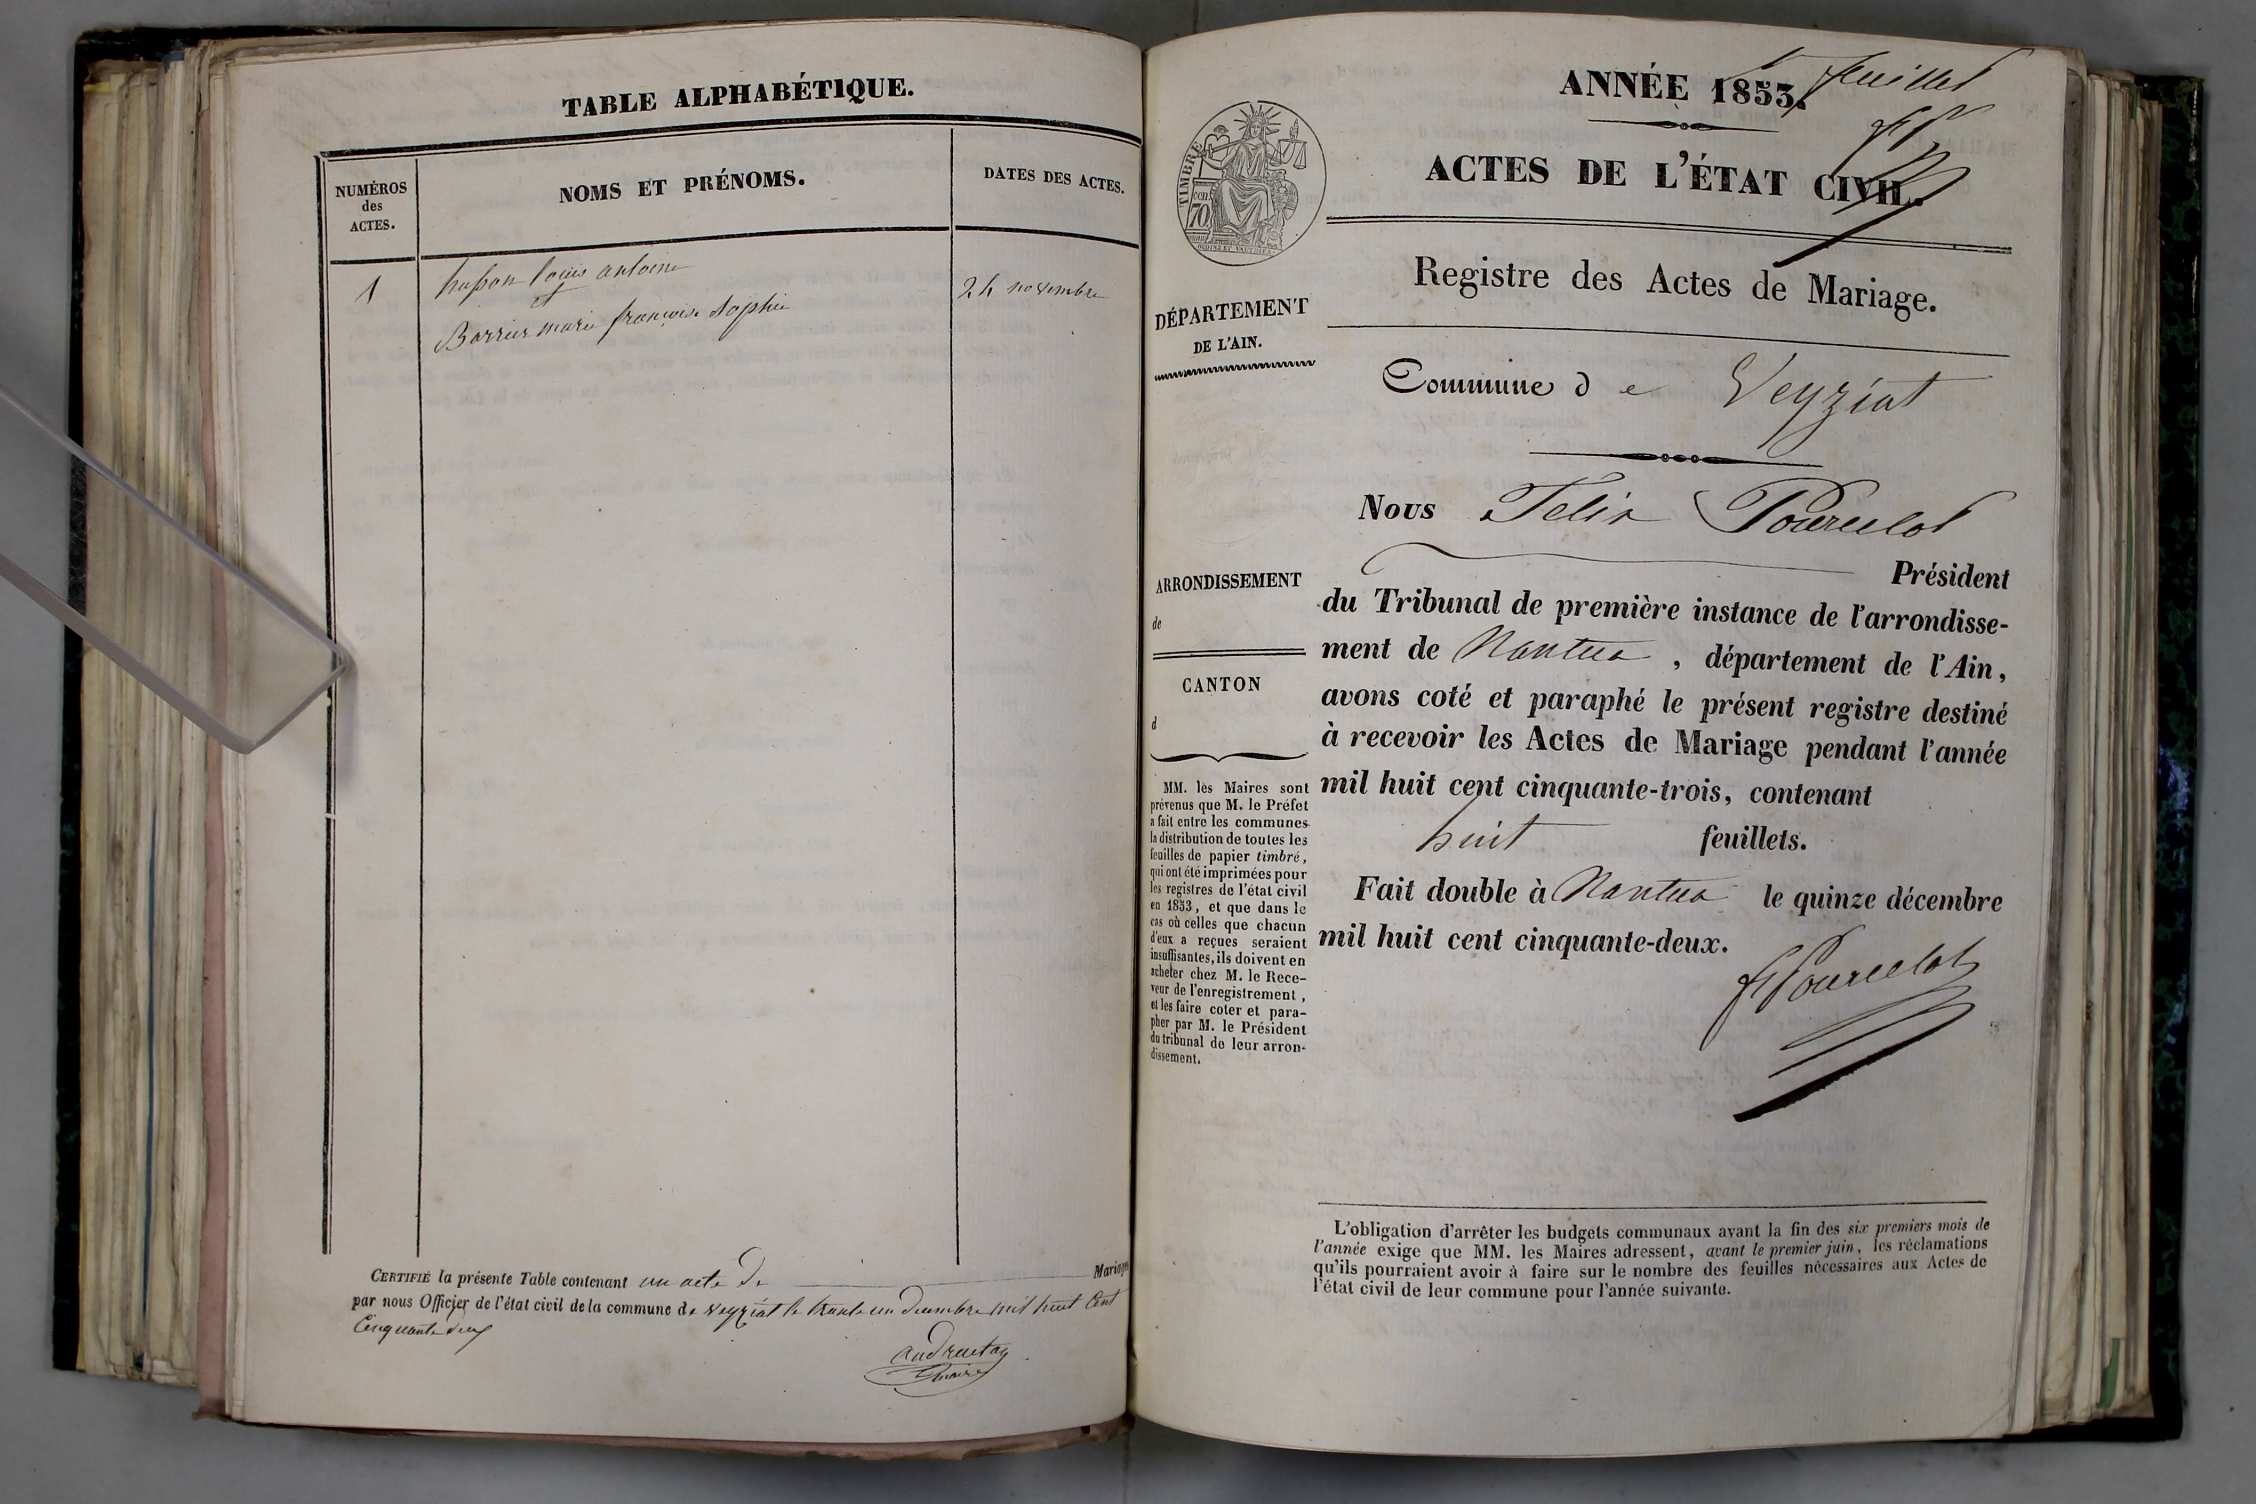 TABLE ALPHABÉTIQUE.
NUMÉROS
des
ACTES.
NOMS ET PRÉNOMS.
DATES DES ACTES.
1
louis antoine
et
24 novembre
Barrier marie françoise Sophie
CERTIFIÉ la présente Table contenant un acte de Mariages
par nous Officier de l'état civil de la commune de Veyziat le trente un Decembre mil huit Cent
Cinquante deux
maire
1 feuillet
ANNÉE 1853.
TIMBRE
70
ACTES DE L'ÉTAT CIVIL.
Registre des Actes de Mariage.
DÉPARTEMENT
DE L'AIN.
Commune de Veyziat
Nous Felix Pourcelot
Président
ARRONDISSEMENT
de
CANTON
d
du Tribunal de première instance de l'arrondisse-
ment de Nantua, département de l'Ain,
avons coté et paraphé le présent registre destiné
à recevoir les Actes de Mariage pendant l'année
mil huit cent cinquante-trois, contenant
huit feuillets.
Fait double à Nantua le quinze décembre
mil huit cent cinquante-deux.
FPourcelot
MM. les Maires sont
prévenus que M. le Préfet
a fait entre les communes
la distribution de toutes les
feuilles de papier timbré,
qui ont été imprimées pour
les registres de l'état civil
en 1853, et que dans le
cas où celles que chacun
d'eux a reçues seraient
insuffisantes, ils doivent en
acheter chez M. le Rece-
veur de l'enregistrement,
et les faire coter et para-
pher par M. le Président
du tribunal de leur arron-
dissement.
L'obligation d'arrêter les budgets communaux avant la fin des six premiers mois de
l'année exige que MM. les Maires adressent, avant le premier juin, les réclamations
qu'ils pourraient avoir à faire sur le nombre des feuilles nécessaires aux Actes de
l'état civil de leur commune pour l'année suivante.